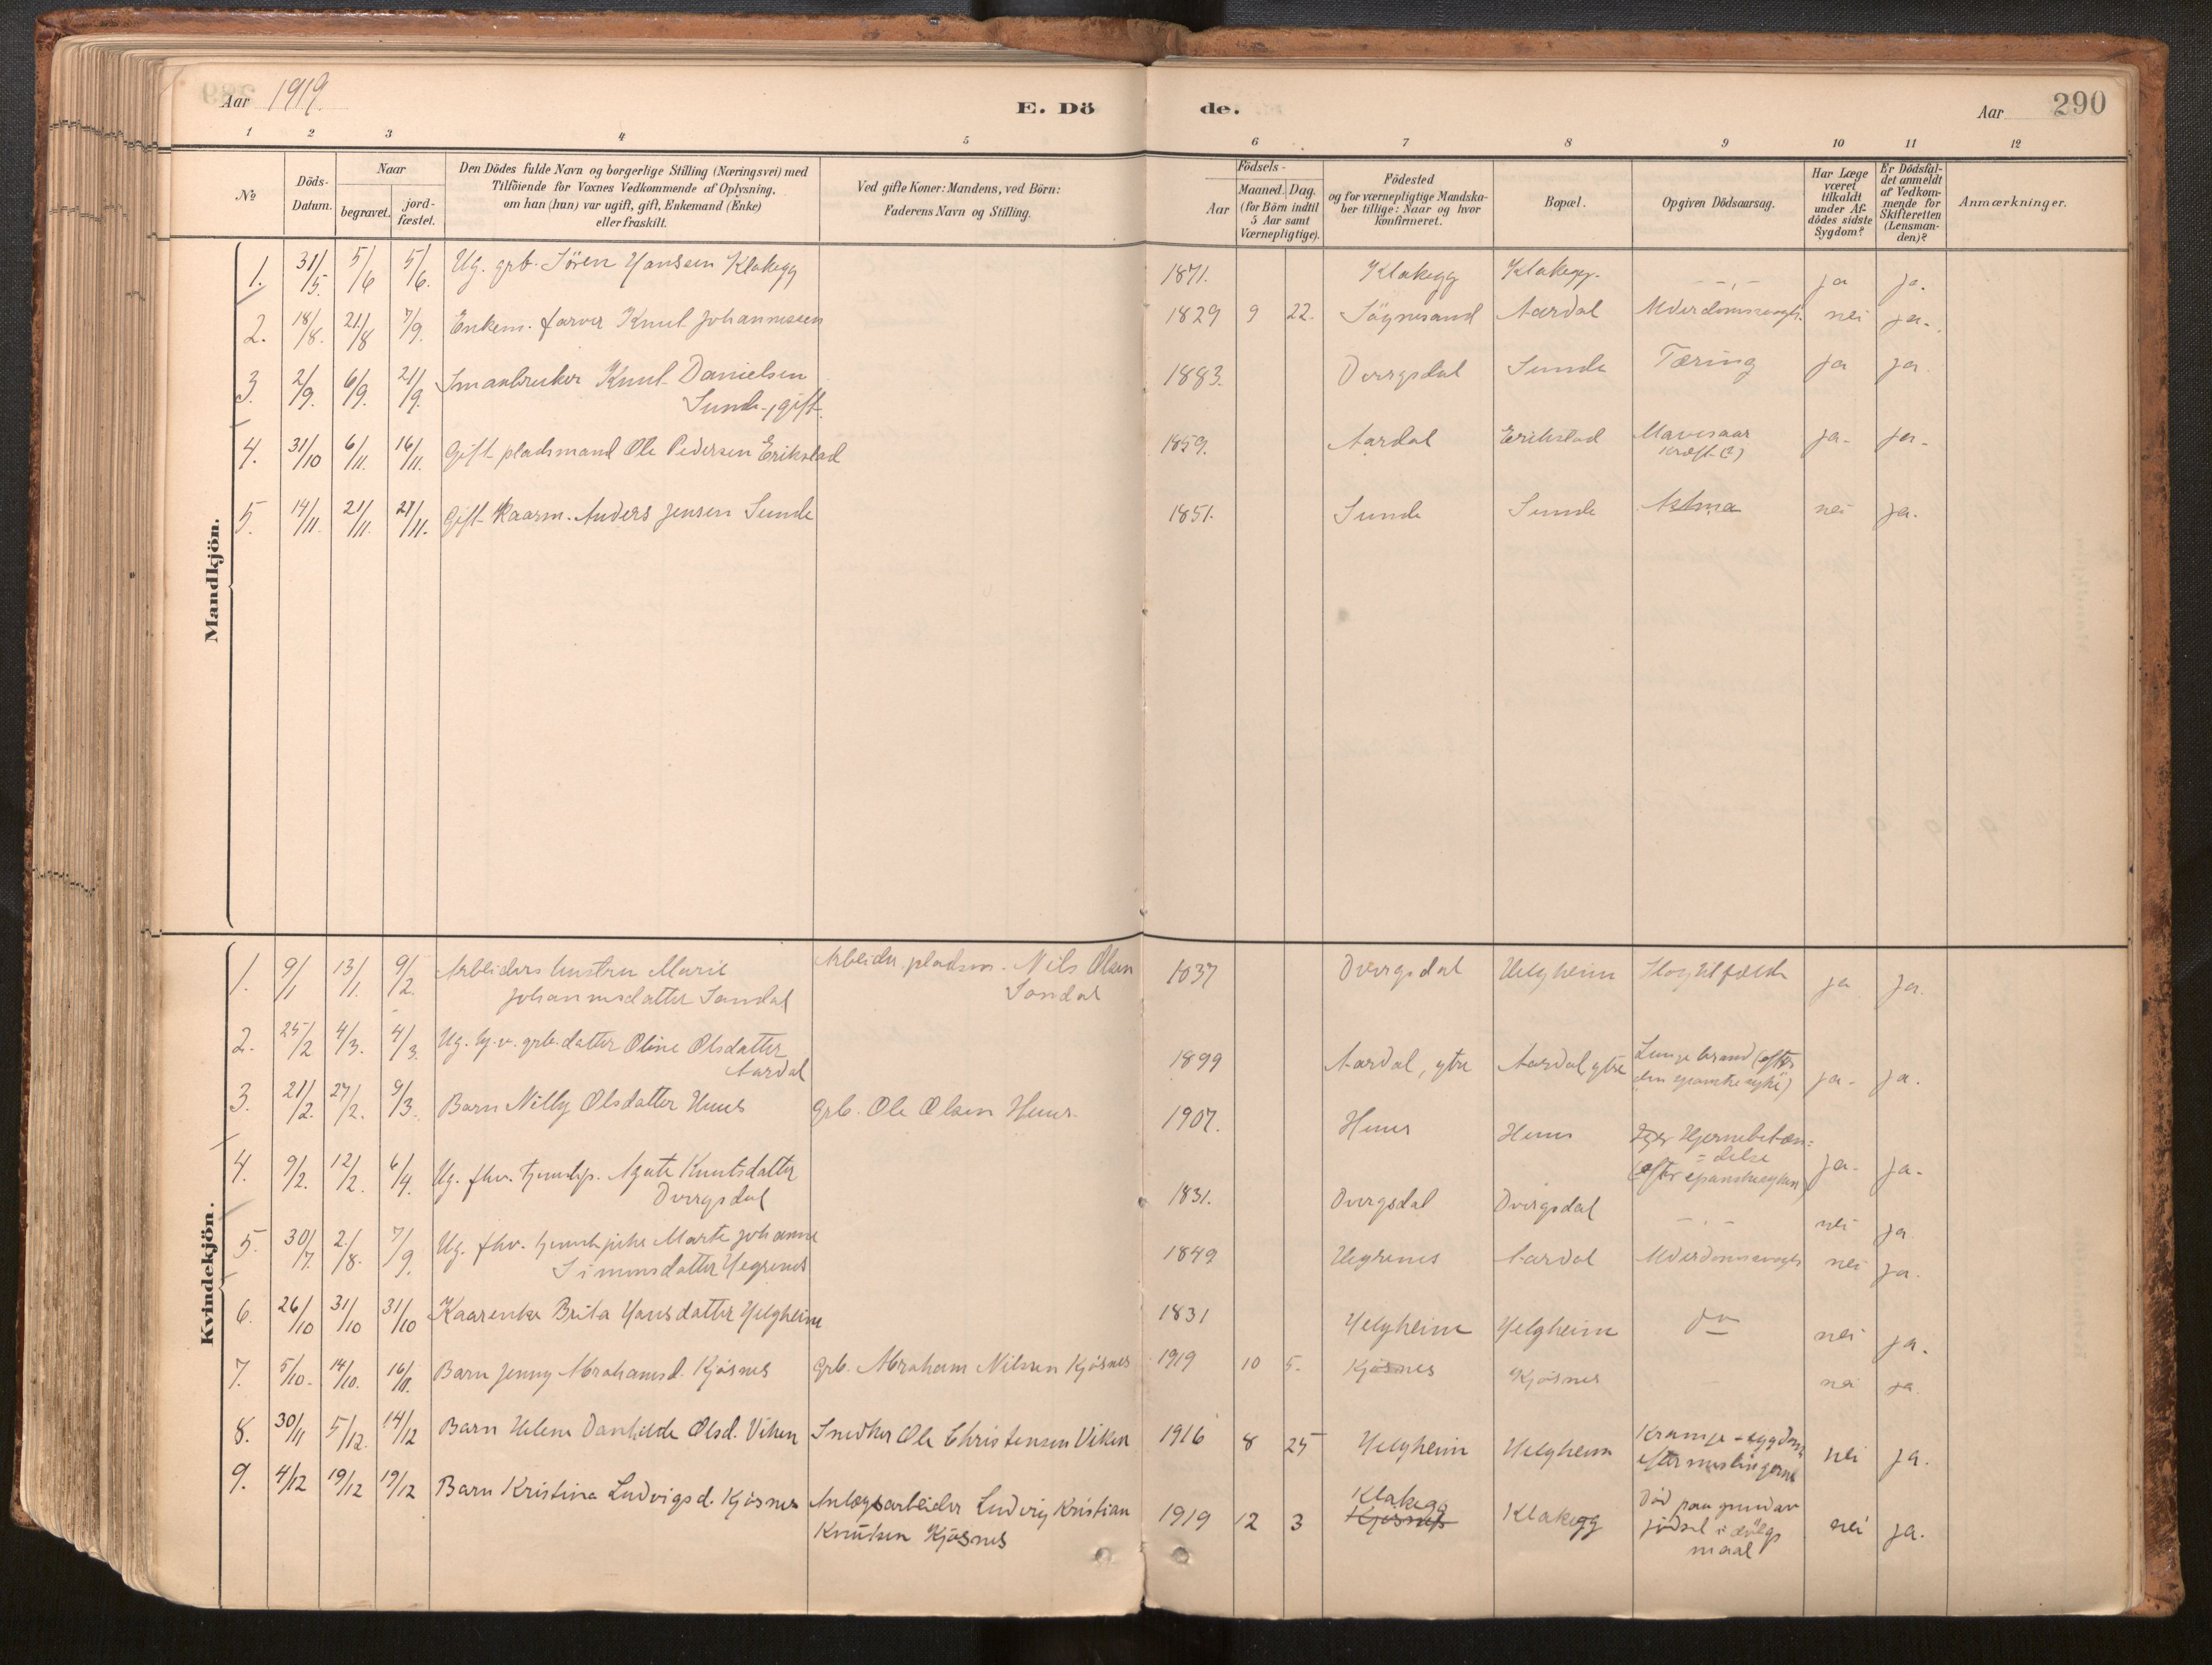 Aar 1919.
E. Dö
de.
Aar
290
1 2 3 4 5 6 7 8 9 10 11 12
No
Döds-
Datum.
Naar
begravet.
jord-
fæstet.
Den Dödes fulde Navn og borgerlige Stilling (Næringsvei) med
Tilföiende for Voxnes Vedkommende af Oplysning,
om han (hun) var ugift, gift, Enkemand (Enke)
eller fraskilt.
Ved gifte Koner: Mandens, ved Börn:
Faderens Navn og Stilling.
Födsels-
Aar
Maaned. Dag.
(for Börn indtil
5 Aar samt
Værnepligtige).
Födested
og for værnepligtige Mandska-
ber tillige: Naar og hvor
konfirmeret.
Bopæl.
Opgiven Dödsaarsag.
Har Læge
været
tilkaldt
under Af-
dödes sidste
Sygdom?
Er Dödsfal-
det anmeldt
af Vedkom-
mende for
Skifteretten
(Lensman-
den)?
Anmærkninger.
Mandkjön.
1. 31/5. 5/6 5/6. Ug. grb. Sören Hansen Klakegg 1871. Klakegg Klakegg. - - ja ja.
2. 18/8. 21/8 7/9. Enkem. farver Knut Johannessen 1829 9 22. Sögnesand Aardal Alderdomssvagh. nei ja.
3. 2/9. 6/9. 21/9. Smaabruker Knut Danielsen
Sunde, gift. 1883. Dvergsdal Sunde Tæring ja ja
4. 31/10 6/11. 16/11. Gift pladsmand Ole Pedersen Erikstad 1859. Aardal Erikstad Mavesaar
kræft (?) ja- ja-
5. 14/11. 21/11. 21/11. Gift kaarm. Anders Jensen Sunde 1851. Sunde Sunde Astma nei ja.
Kvindekjön.
1. 9/1 13/1. 9/2. Arbeiders hustru Marie
Johannesdatter Sandal Arbeider, pladsm. Nils Olsen
Sandal 1837 Dvergsdal Helgheim Slagtilfælde ja ja.
2. 25/2 4/3. 4/3. Ug. hj.v. grb.datter Oline Olsdatter
Aardal 1899 Aardal, ytre Aardal, ytre Lungebrand (efter
den spanske syke) ja- ja.
3. 21/2. 27/2. 9/3. Barn Nelly Olsdatter Huus Grb. Ole Olsen Huus. 1907. Huus Huus Hjernebetæn=
=delse
(efter spanskesyken) ja- ja-
4. 9/2. 12/2. 6/4. Ug. fhv. tjenestep. Agate Knutsdatter
Dvergsdal 1831. Dvergsdal Dvergsdal - - nei ja
5. 30/7. 2/8. 7/9. Ug. fhv. tjenestepike Marte Johanne
Simensdatter Hegrenes 1849 Hegrenes Aardal Alderdomssvagh. nei ja.
6. 26/10 31/10 31/10 Kaarenke Brita Hansdatter Helgheim 1831 Helgheim Helgheim do nei ja.
7. 5/10. 14/10. 16/11. Barn Jenny Abrahamsd. Kjösnes Grb. Abraham Nilsen Kjösnes 1919 10 5. Kjösnes Kjösnes nei ja.
8. 30/11 5/12. 14/12 Barn Helene Danhilde Olsd. Viken Snedker Ole Christensen Viken 1916 8 25 Helgheim Helgheim Krampe-sygdom
efter meslingerne nei ja.
9. 4/12 19/12 19/12 Barn Kristina Ludvigsd. Kjösnes Anlægsarbeider Ludvig Kristian
Knutsen Kjösnes 1919 12 3 Klakegg
Kjösnes Klakegg Död paa grund av
födsel i dölgs
maal nei ja.